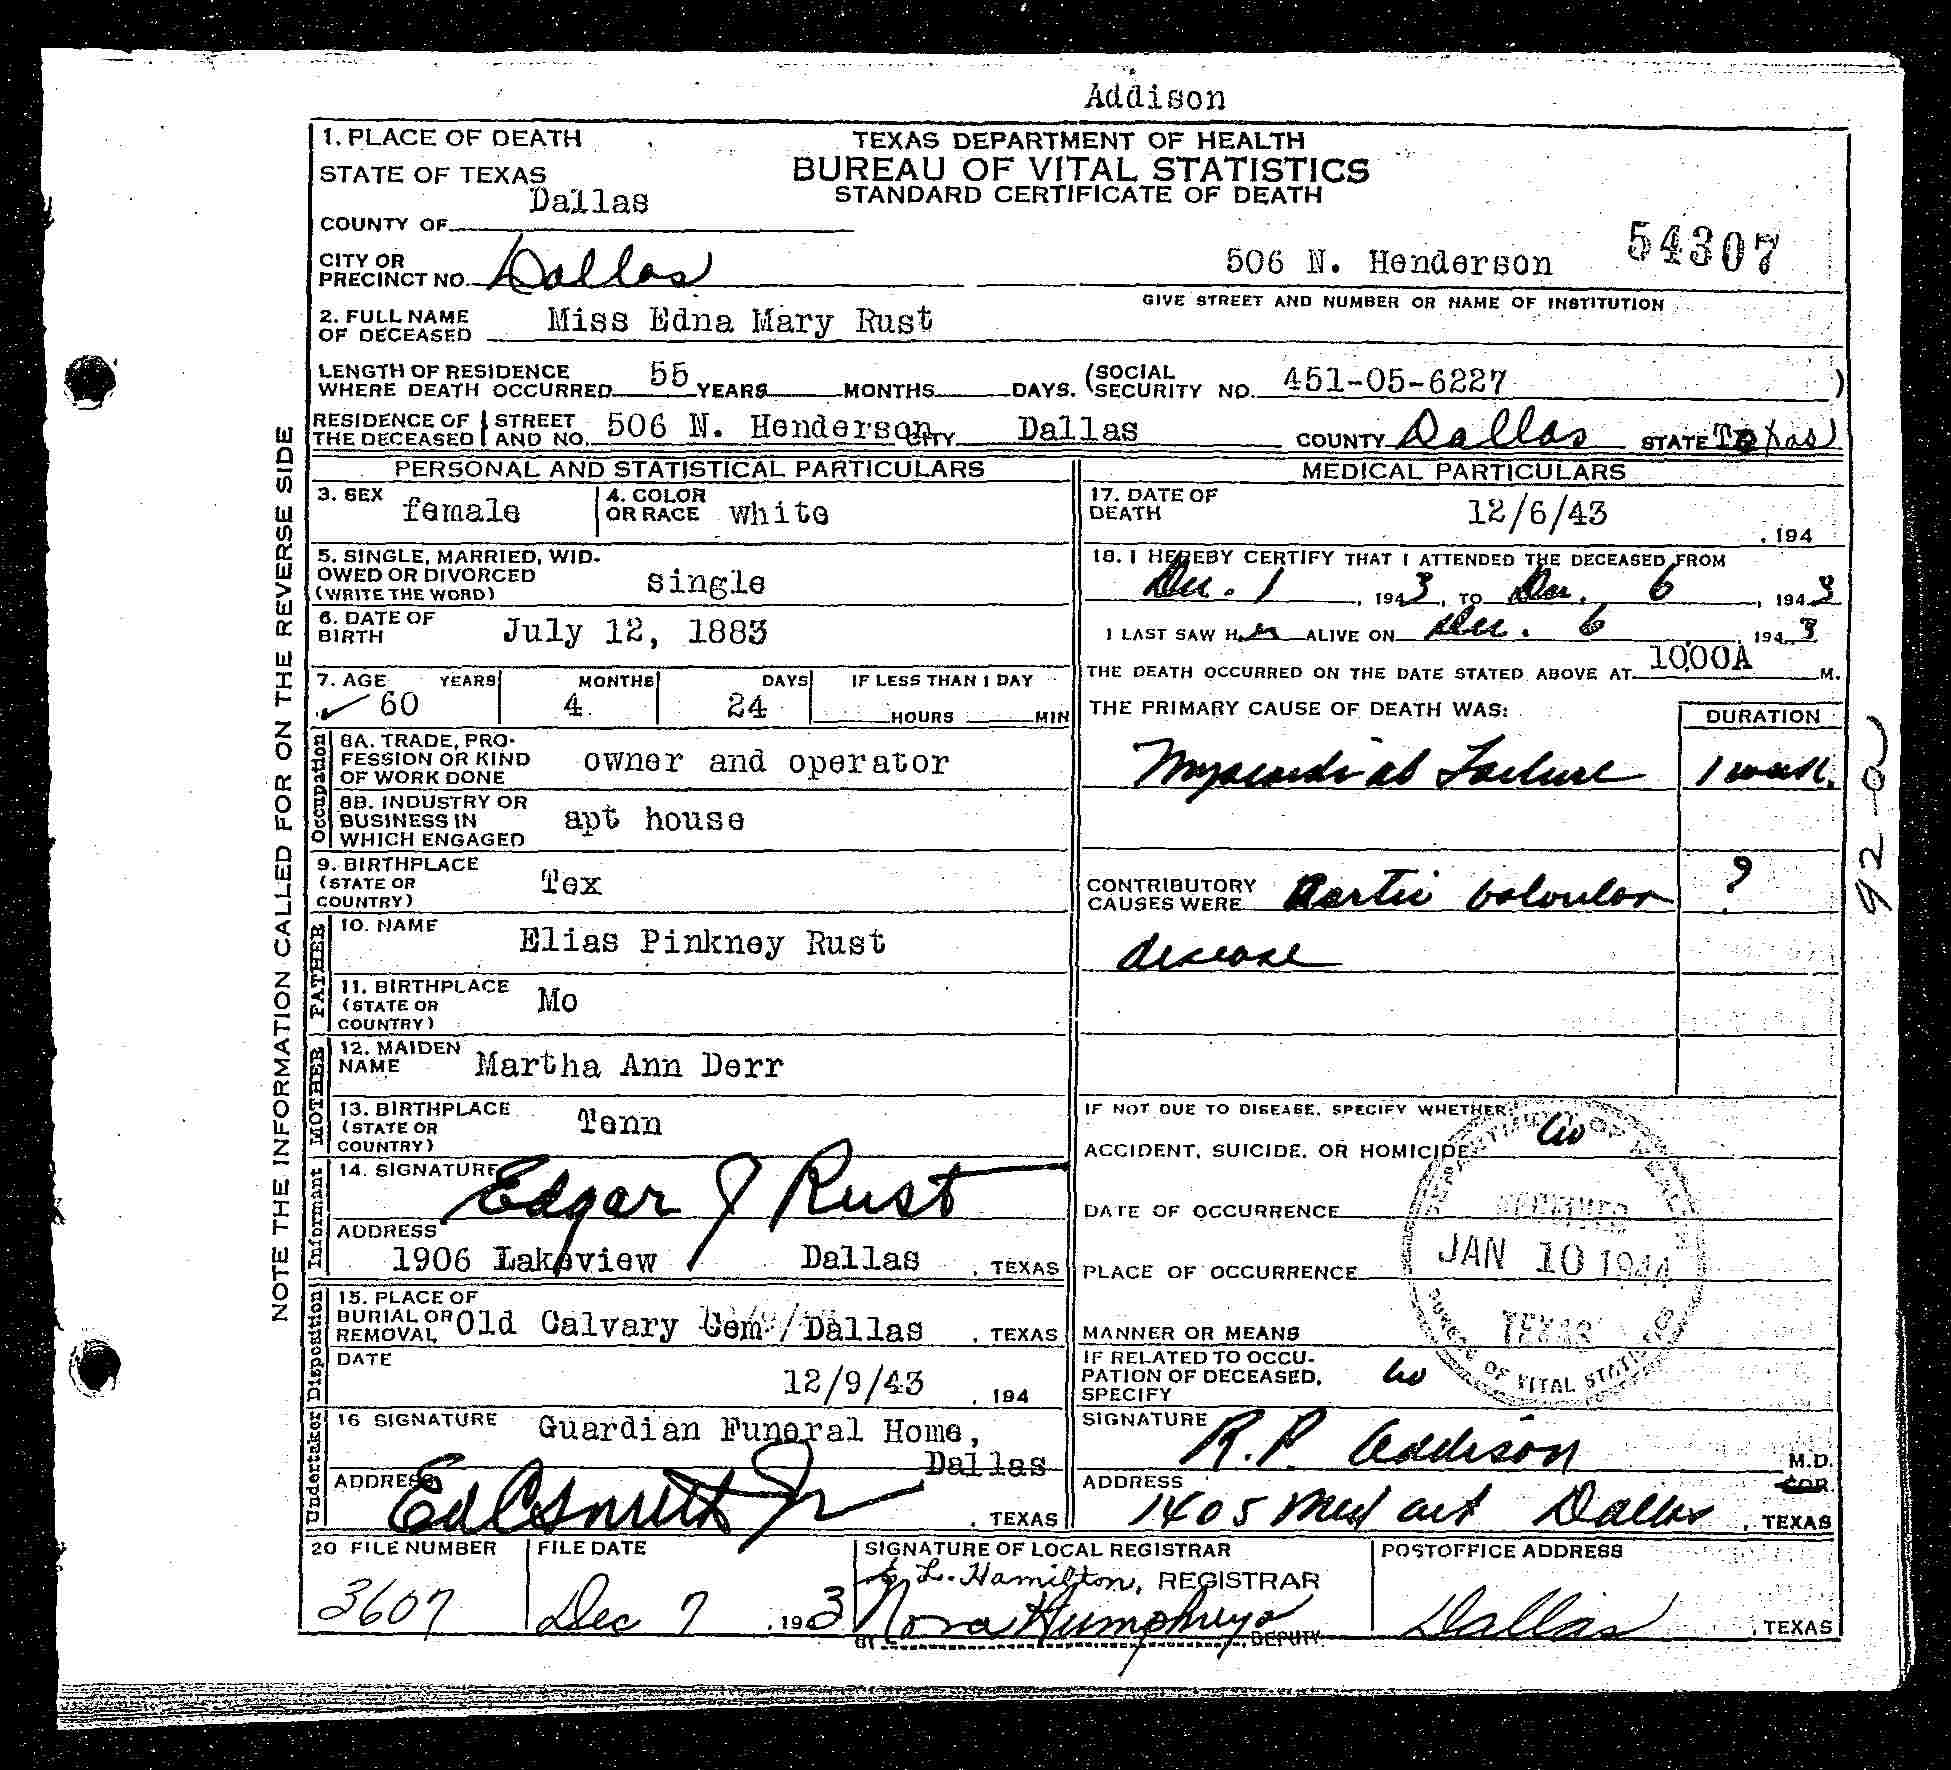 Addison
1. PLACE OF DEATH
TEXAS DEPARTMENT OF HEALTH
STATE OF TEXAS
BUREAU OF VITAL STATISTICS
STANDARD CERTIFICATE OF DEATH
COUNTY OF Dallas
54307
CITY OR PRECINCT NO. Dallas
506 N. Henderson
GIVE STREET AND NUMBER OR NAME OF INSTITUTION
2. FULL NAME OF DECEASED Miss Edna Mary Rust
LENGTH OF RESIDENCE WHERE DEATH OCCURRED 55 YEARS MONTHS DAYS. (SOCIAL SECURITY NO. 451-05-6227 )
RESIDENCE OF THE DECEASED STREET AND NO. 506 N. Henderson CITY Dallas COUNTY Dallas STATE Texas
PERSONAL AND STATISTICAL PARTICULARS
3. SEX female 4. COLOR OR RACE white
5. SINGLE, MARRIED, WIDOWED OR DIVORCED (WRITE THE WORD) single
6. DATE OF BIRTH July 12, 1883
7. AGE YEARS MONTHS DAYS IF LESS THAN 1 DAY
60 4 24 HOURS MIN
Occupation
8A. TRADE, PROFESSION OR KIND OF WORK DONE owner and operator
8B. INDUSTRY OR BUSINESS IN WHICH ENGAGED apt house
9. BIRTHPLACE (STATE OR COUNTRY) Tex
FATHER
10. NAME Elias Pinkney Rust
11. BIRTHPLACE (STATE OR COUNTRY) Mo
MOTHER
12. MAIDEN NAME Martha Ann Derr
13. BIRTHPLACE (STATE OR COUNTRY) Tenn
Informant
14. SIGNATURE Edgar J Rust
ADDRESS 1906 Lakeview Dallas , TEXAS
Disposition
15. PLACE OF BURIAL OR REMOVAL Old Calvary Cem / Dallas , TEXAS
DATE 12/9/43 , 194
Undertaker
16 SIGNATURE Guardian Funeral Home, Dallas
ADDRESS Ed C Smith Jr , TEXAS
MEDICAL PARTICULARS
17. DATE OF DEATH 12/6/43 , 194
18. I HEREBY CERTIFY THAT I ATTENDED THE DECEASED FROM
Dec. 1 , 1943, TO Dec. 6 , 1943
I LAST SAW Her ALIVE ON Dec. 6 , 1943
THE DEATH OCCURRED ON THE DATE STATED ABOVE AT 10:00A M.
THE PRIMARY CAUSE OF DEATH WAS: DURATION
Myocardial Failure 1 week.
CONTRIBUTORY CAUSES WERE Aortic valvular ?
disease
92-a
IF NOT DUE TO DISEASE, SPECIFY WHETHER:
ACCIDENT, SUICIDE, OR HOMICIDE no
DATE OF OCCURRENCE
PLACE OF OCCURRENCE
MANNER OR MEANS
IF RELATED TO OCCUPATION OF DECEASED, SPECIFY no
DEPARTMENT OF HEALTH
RECEIVED
JAN 10 1944
TEXAS
BUREAU OF VITAL STATISTICS
SIGNATURE R.P. Addison M.D.
COR
ADDRESS 1405 Med art Dallas , TEXAS
20 FILE NUMBER FILE DATE SIGNATURE OF LOCAL REGISTRAR POSTOFFICE ADDRESS
L. Hamilton, REGISTRAR
3607 Dec 7 , 1943 Nora Humphreys Dallas , TEXAS
BY DEPUTY
NOTE THE INFORMATION CALLED FOR ON THE REVERSE SIDE